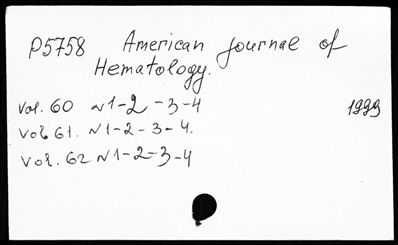 P5758 American Journal of
Hematology.
Vol. 60 N1-2-3-4 1999
Vol. 61. N1-2-3-4.
Vol. 62 N1-2-3-4